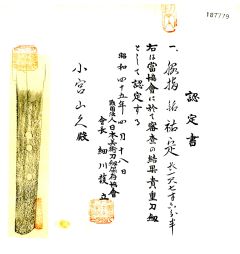 187779
認定書
一、脇指 銘 祐定 長一尺七寸六分半
右は當協會に於て審査の結果貴重刀劍
として認定する
昭和四十五年四月十八日
財団法人日本美術刀劍保存協會
會長 細川護立
小宮山久殿